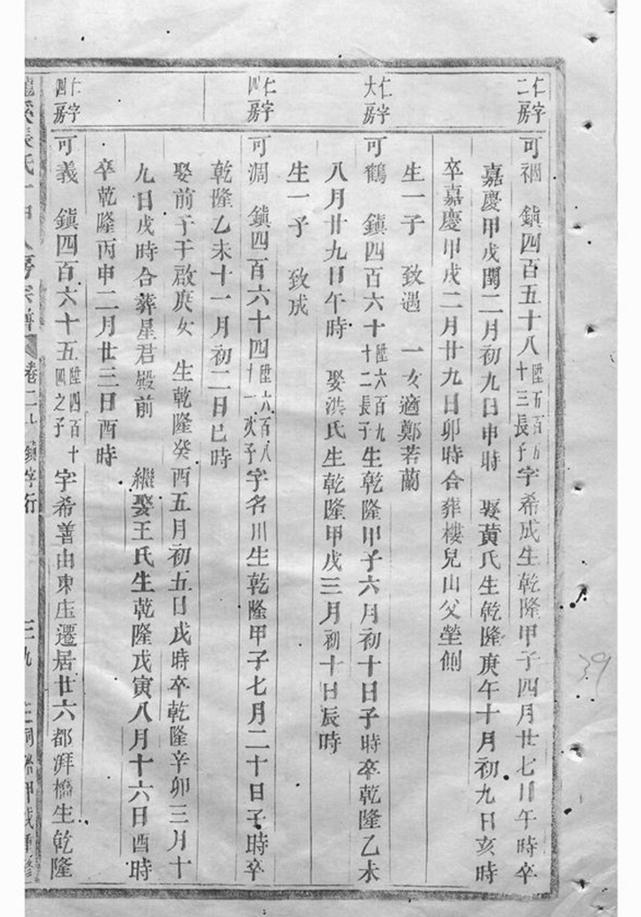 仁字二房
可裀 鎮四百五十八 陞五百五十三長子 字希成生乾隆甲子四月廿七日午時卒
嘉慶甲戌閏二月初九日申時 娶黃氏生乾隆庚午十月初九日亥時
卒嘉慶甲戌二月廿九日卯時合葬樓兒山父塋側
生一子 致遇 一女適鄭若蘭
仁字大房
可鶴 鎮四百六十 陞六百九十二長子 生乾隆甲子六月初十日子時卒乾隆乙未
八月廿九日午時 娶洪氏生乾隆甲戌三月初十日辰時
生一子 致成
仁字四房
可澗 鎮四百六十四 陞六百八十一次子 字名川生乾隆甲子七月二十日子時卒
乾隆乙未十一月初二日巳時
娶前于于啟庚女 生乾隆癸酉五月初五日戌時卒乾隆辛卯三月十
九日戌時合葬星君殿前 繼娶王氏生乾隆戊寅八月十六日酉時
卒乾隆丙申二月廿三日酉時
仁字四房
可義 鎮四百六十五 陞四百十四之子 字希善由東庄遷居廿六都湃橋生乾隆
張氏 宗譜 卷二十 鎮字行 三九 甲戌重修
39